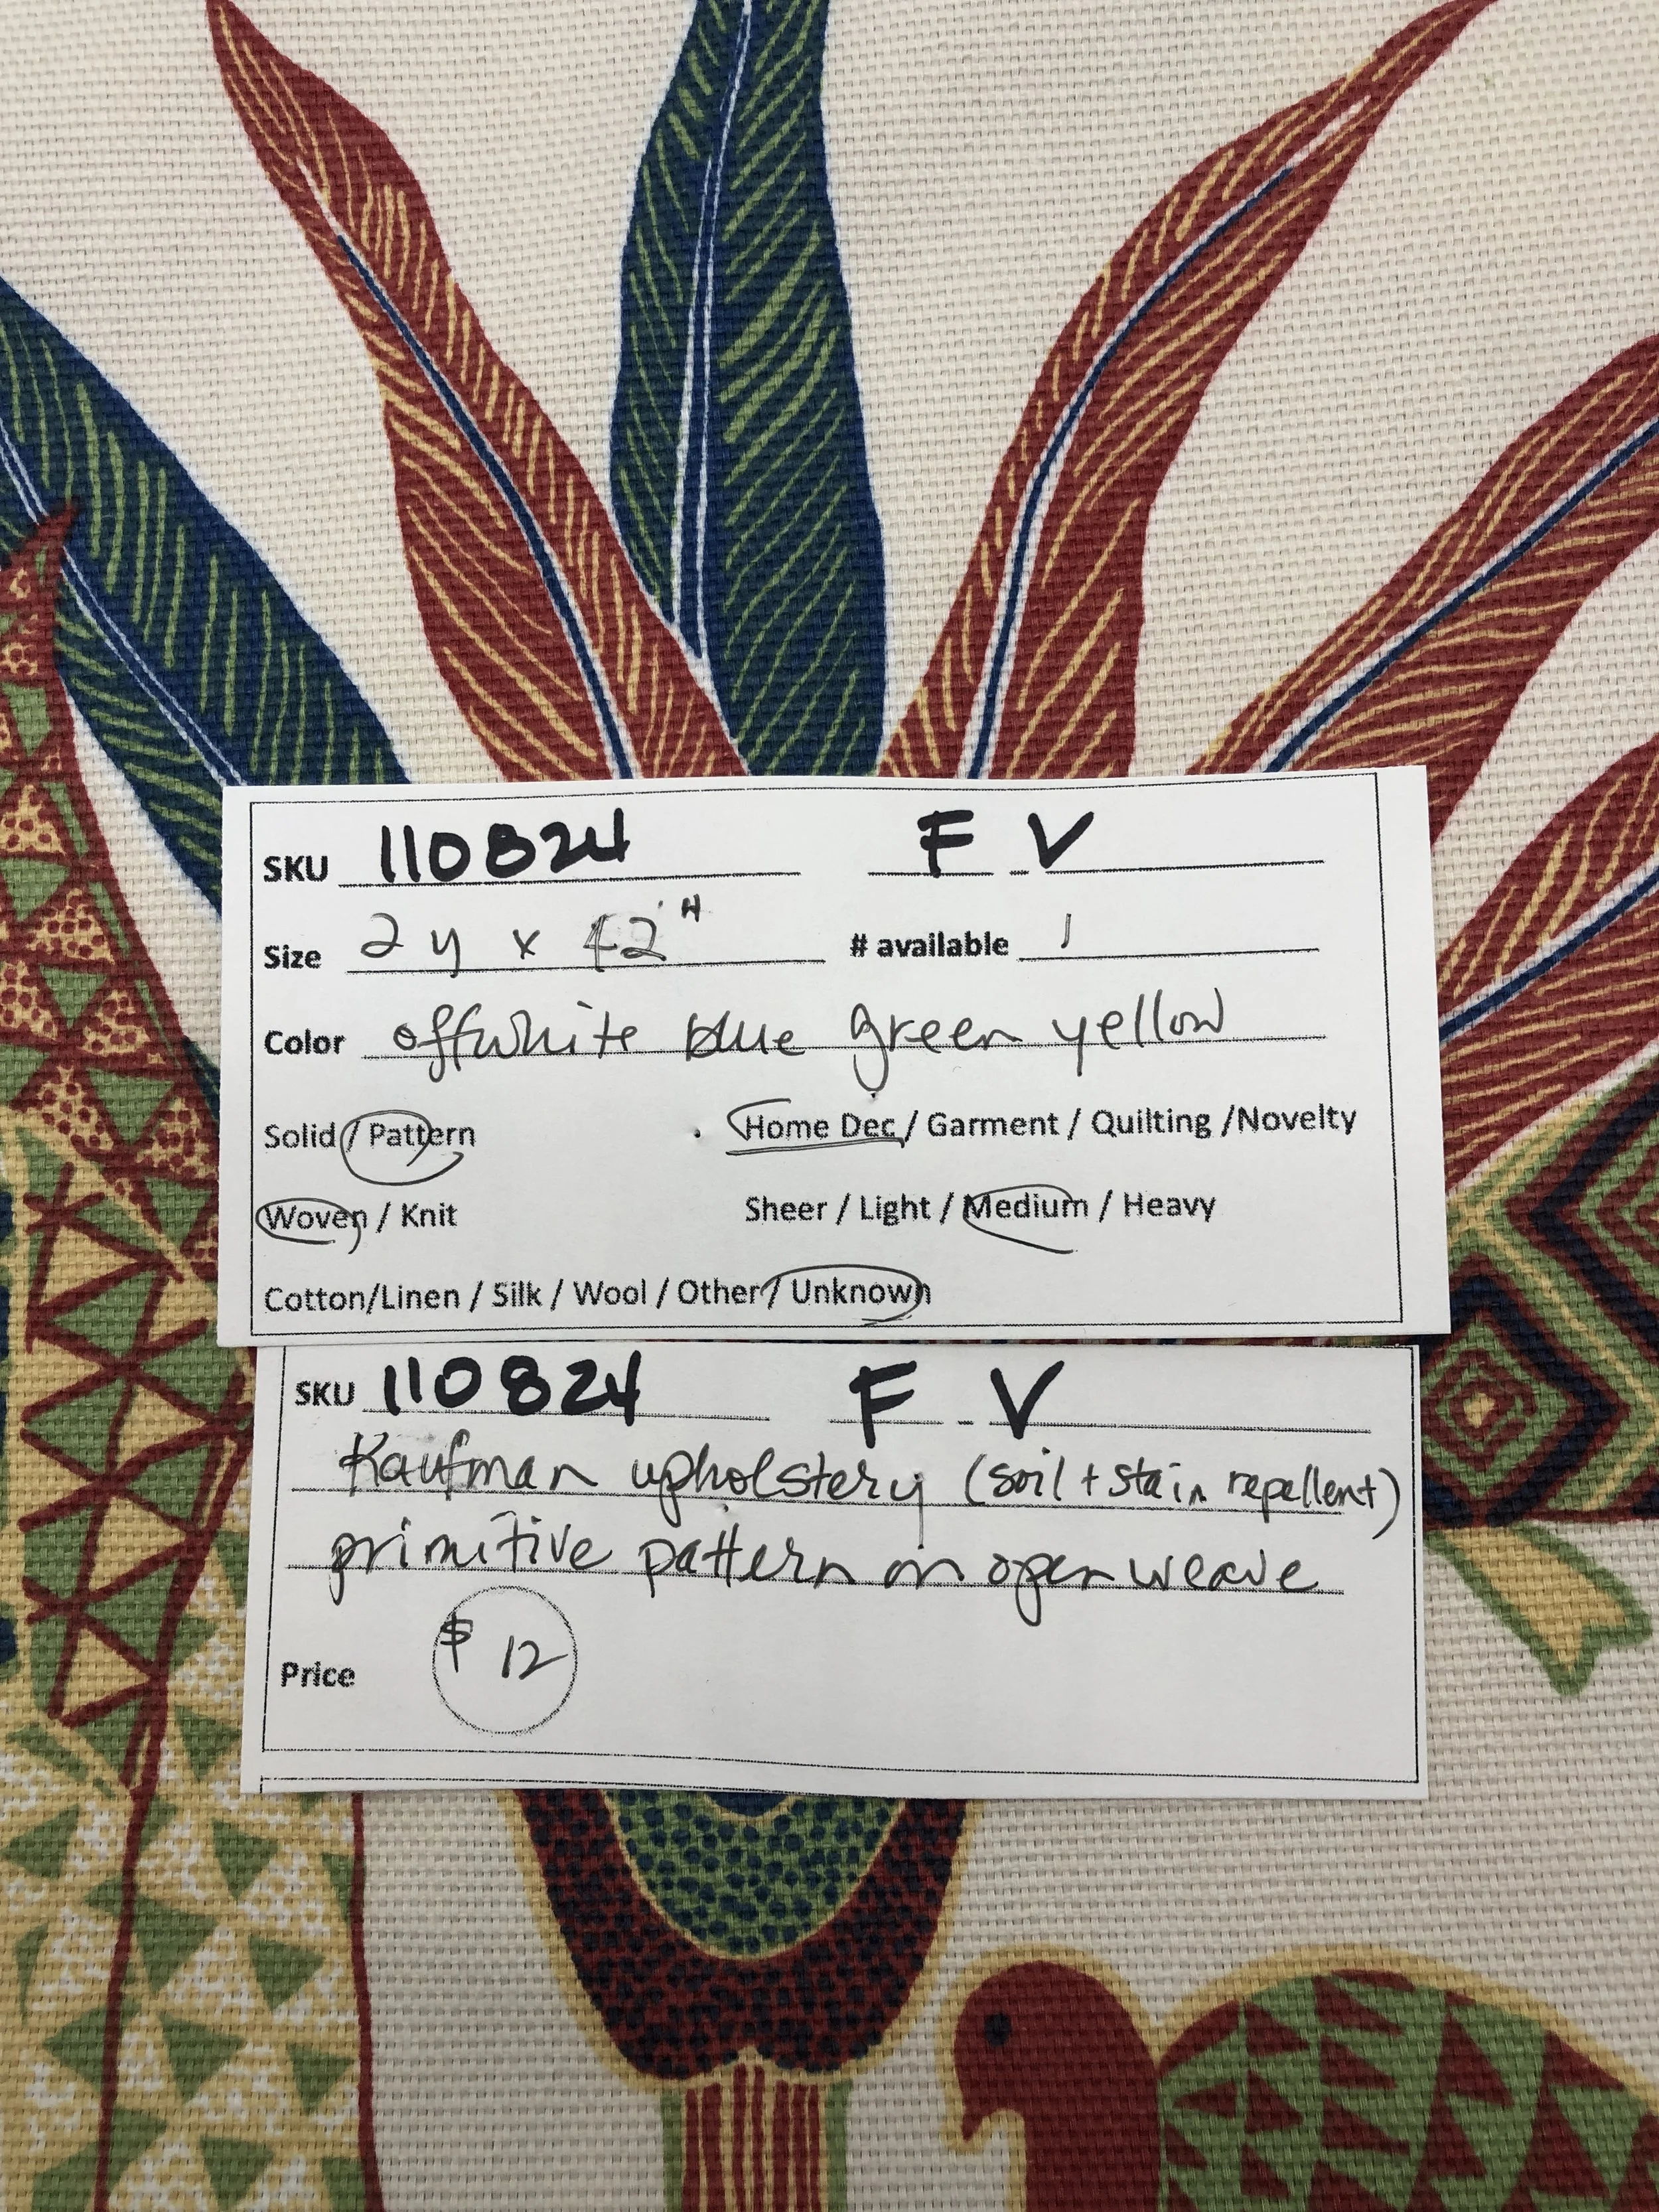 SKU 110824 F V
Size 2 y x 42" # available 1
Color offwhite blue green yellow
Solid / Pattern . Home Dec / Garment / Quilting /Novelty
Woven / Knit Sheer / Light / Medium / Heavy
Cotton/Linen / Silk / Wool / Other / Unknown
SKU 110824 F V
Kaufman upholstery (soil + stain repellent)
primitive pattern on open weave
Price $ 12